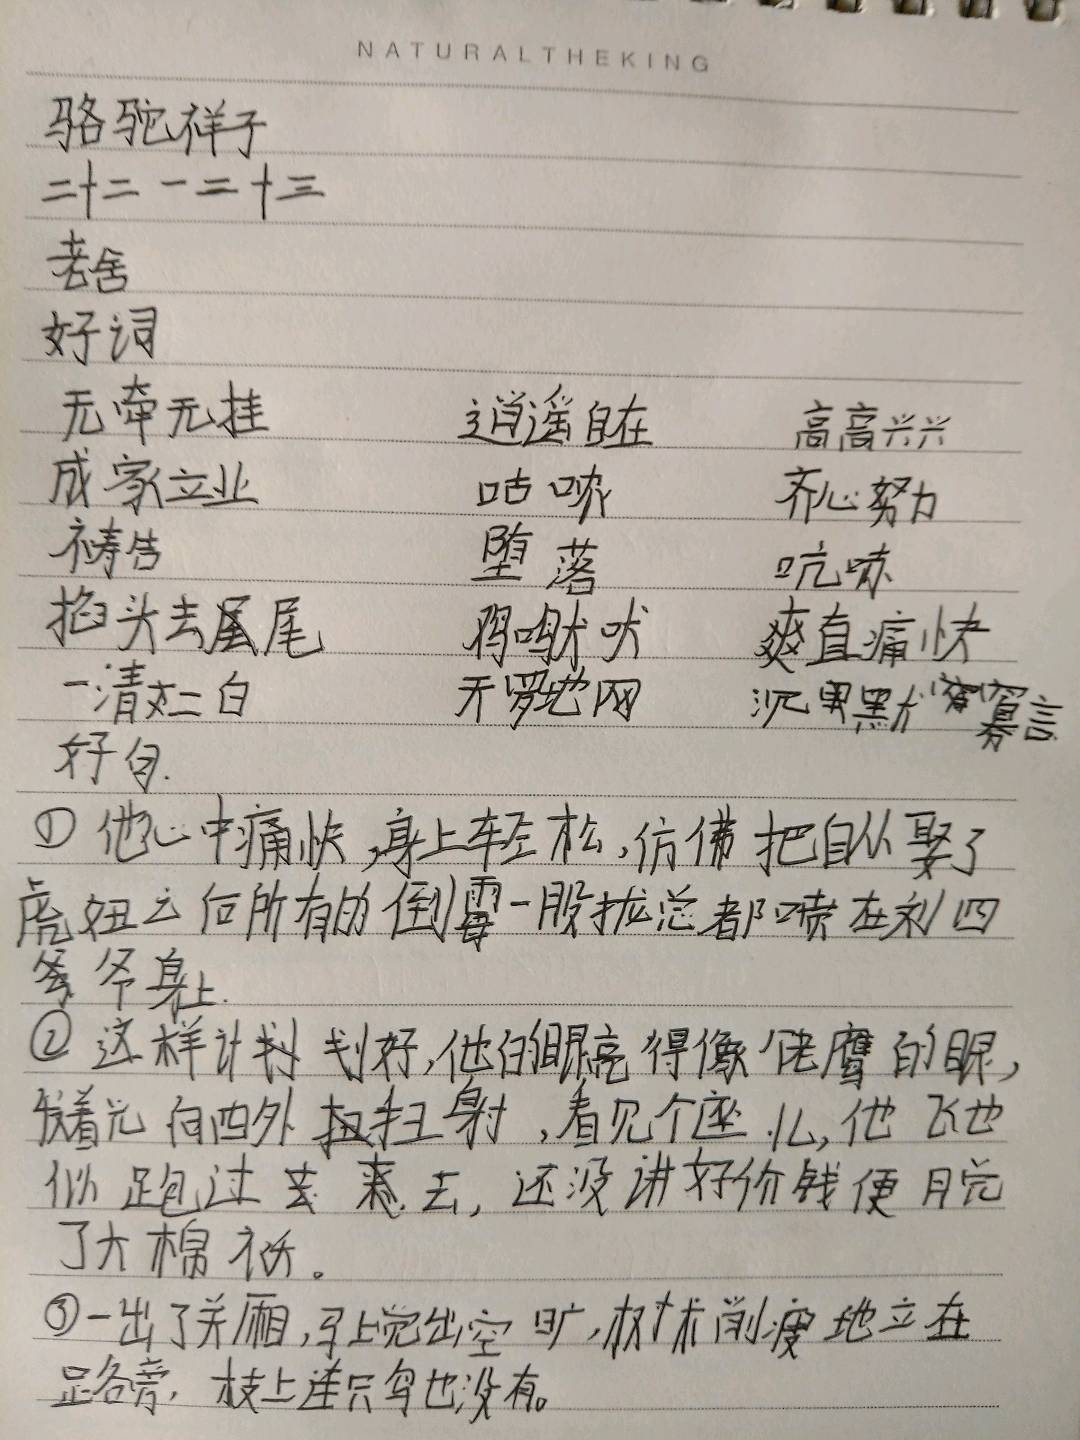 NATURALTHEKING
骆驼祥子
二十二一二十三
老舍
好词
无牵无挂 逍遥自在 高高兴兴
成家立业 咕哝 齐心努力
祷告 堕落 吭哧
掐头去尾 鸡鸣犬吠 爽直痛快
一清二白 天罗地网 沉默寡言
好句.
① 他心中痛快,身上轻松,仿佛把自从娶了
虎妞之后所有的倒霉一股拢总都喷在刘四
爷爷身上.
② 这样计划好,他的眼亮得像老鹰的眼,
发着光向四外扫射,看见个座儿,他飞也
似跑过去,还没讲好价钱便脱
了大棉袄。
③一出了关厢,马上觉出空旷,树木削瘦地立在
路旁,枝上连只鸟也没有。